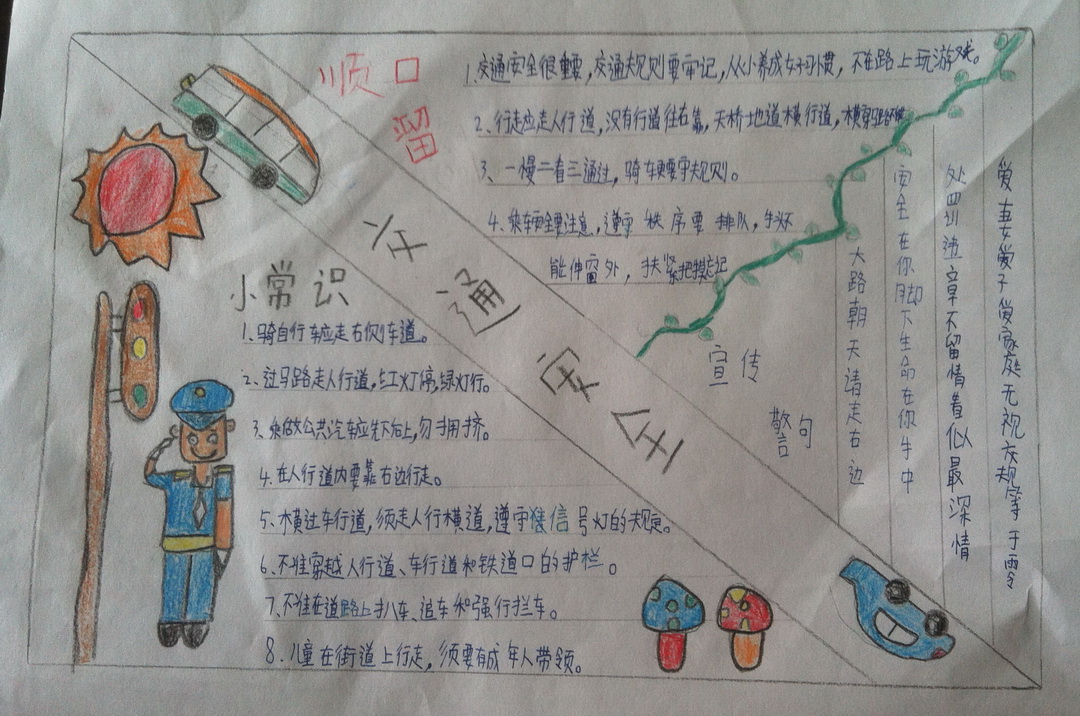 顺口
留
1.交通安全很重要，交通规则要牢记，从小养成好习惯，不在路上玩游戏。
2、行走应走人行道，没有行道往右靠，天桥地道横行道，横穿
3、一慢二看三通过，骑车更要守规则。
4.乘车安全要注意，遵守秩序要排队，手
能伸窗外，扶紧把
交通安全
小常识
1、骑自行车应走右侧车道。
2、过马路走人行道，红灯停，绿灯行。
3、乘做公共汽车应先下后上，勿拥挤。
4.在人行道内要靠右边行走。
5、横过车行道，须走人行横道，遵守信号灯的规定。
6、不准穿越人行道、车行道和铁道口的护栏。
7、不准在道路上扒车、追车和强行拦车。
8.儿童在街道上行走，须要有成年人带领。
宣传
警句
爱妻爱子爱家庭无视交规等于零
处罚违章不留情看似最深情
安全在你脚下生命在你手中
大路朝天请走右边